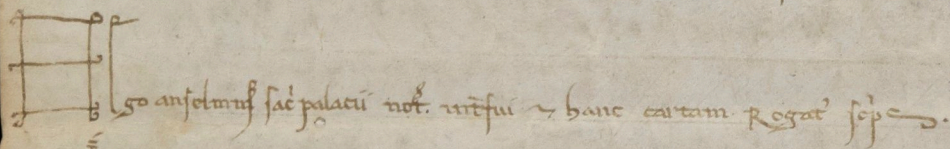 Ego anselmus sac̄ palacii not̄. int̄fui ⁊ hanc cartam Rogat᷒ sc̄psi.